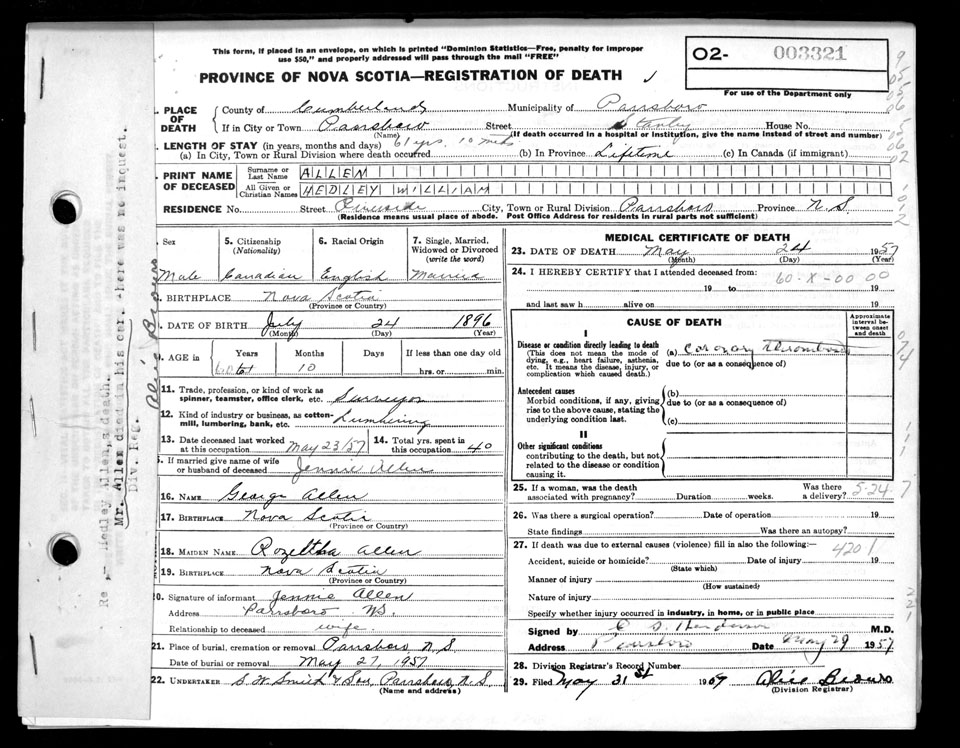 This form, if placed in an envelope, on which is printed "Dominion Statistics—Free, penalty for improper
use $50," and properly addressed will pass through the mail "FREE"
PROVINCE OF NOVA SCOTIA—REGISTRATION OF DEATH
O2- 003321
For use of the Department only
PLACE OF DEATH
County of Cumberland Municipality of Parrsboro
If in City or Town Parrsboro Street House No.
(Name) (If death occurred in a hospital or institution, give the name instead of street and number)
LENGTH OF STAY (in years, months and days)
(a) In City, Town or Rural Division where death occurred 61 yrs. 10 mths. (b) In Province Lifetime (c) In Canada (if immigrant)
PRINT NAME OF DECEASED
Surname or Last Name ALLEN
All Given or Christian Names HEDLEY WILLIAM
RESIDENCE No. Street Riverside City, Town or Rural Division Parrsboro Province N.S.
(Residence means usual place of abode. Post Office Address for residents in rural parts not sufficient)
Sex Male
5. Citizenship (Nationality) Canadian
6. Racial Origin English
7. Single, Married, Widowed or Divorced (write the word) Married
BIRTHPLACE Nova Scotia
(Province or Country)
DATE OF BIRTH July 24 1896
(Month) (Day) (Year)
AGE in Years Months 10 Days If less than one day old hrs. or min.
11. Trade, profession, or kind of work as spinner, teamster, office clerk, etc. Surveyor
12. Kind of industry or business, as cotton-mill, lumbering, bank, etc. Lumbering
13. Date deceased last worked at this occupation May 23/57
14. Total yrs. spent in this occupation 40
If married give name of wife or husband of deceased Jennie Allen
16. NAME George Allen
17. BIRTHPLACE Nova Scotia
(Province or Country)
18. MAIDEN NAME Rozettha Allen
19. BIRTHPLACE Nova Scotia
(Province or Country)
20. Signature of informant Jennie Allen
Address Parrsboro NS.
Relationship to deceased wife
21. Place of burial, cremation or removal Parrsboro, N.S.
Date of burial or removal May 27, 1957
22. UNDERTAKER S. W. Smith & Son, Parrsboro, N.S.
(Name and address)
MEDICAL CERTIFICATE OF DEATH
23. DATE OF DEATH May 24 1957
(Month) (Day) (Year)
24. I HEREBY CERTIFY that I attended deceased from:
60-X-00 00
19 to 19
and last saw h alive on 19
CAUSE OF DEATH
Approximate interval between onset and death
I
Disease or condition directly leading to death
(This does not mean the mode of dying, e.g., heart failure, asthenia, etc. It means the disease, injury, or complication which caused death.)
(a) Coronary Thrombosis
due to (or as a consequence of)
Antecedent causes
Morbid conditions, if any, giving rise to the above cause, stating the underlying condition last.
(b)
due to (or as a consequence of)
(c)
II
Other significant conditions
contributing to the death, but not related to the disease or condition causing it.
25. If a woman, was the death associated with pregnancy? Duration weeks. Was there a delivery?
5-24 7
26. Was there a surgical operation? Date of operation 19
State findings Was there an autopsy?
27. If death was due to external causes (violence) fill in also the following:—
4201
Accident, suicide or homicide? Date of injury 19
(State which)
Manner of injury
(How sustained)
Nature of injury
Specify whether injury occurred in industry, in home, or in public place
Signed by Henderson M.D.
Address Parrsboro Date May 29 1957
28. Division Registrar's Record Number
29. Filed May 31st 19
(Division Registrar)
Re - Hedley Allen,s death.
Mr. Allen died in his car. there was no inquest.
Div. Reg.